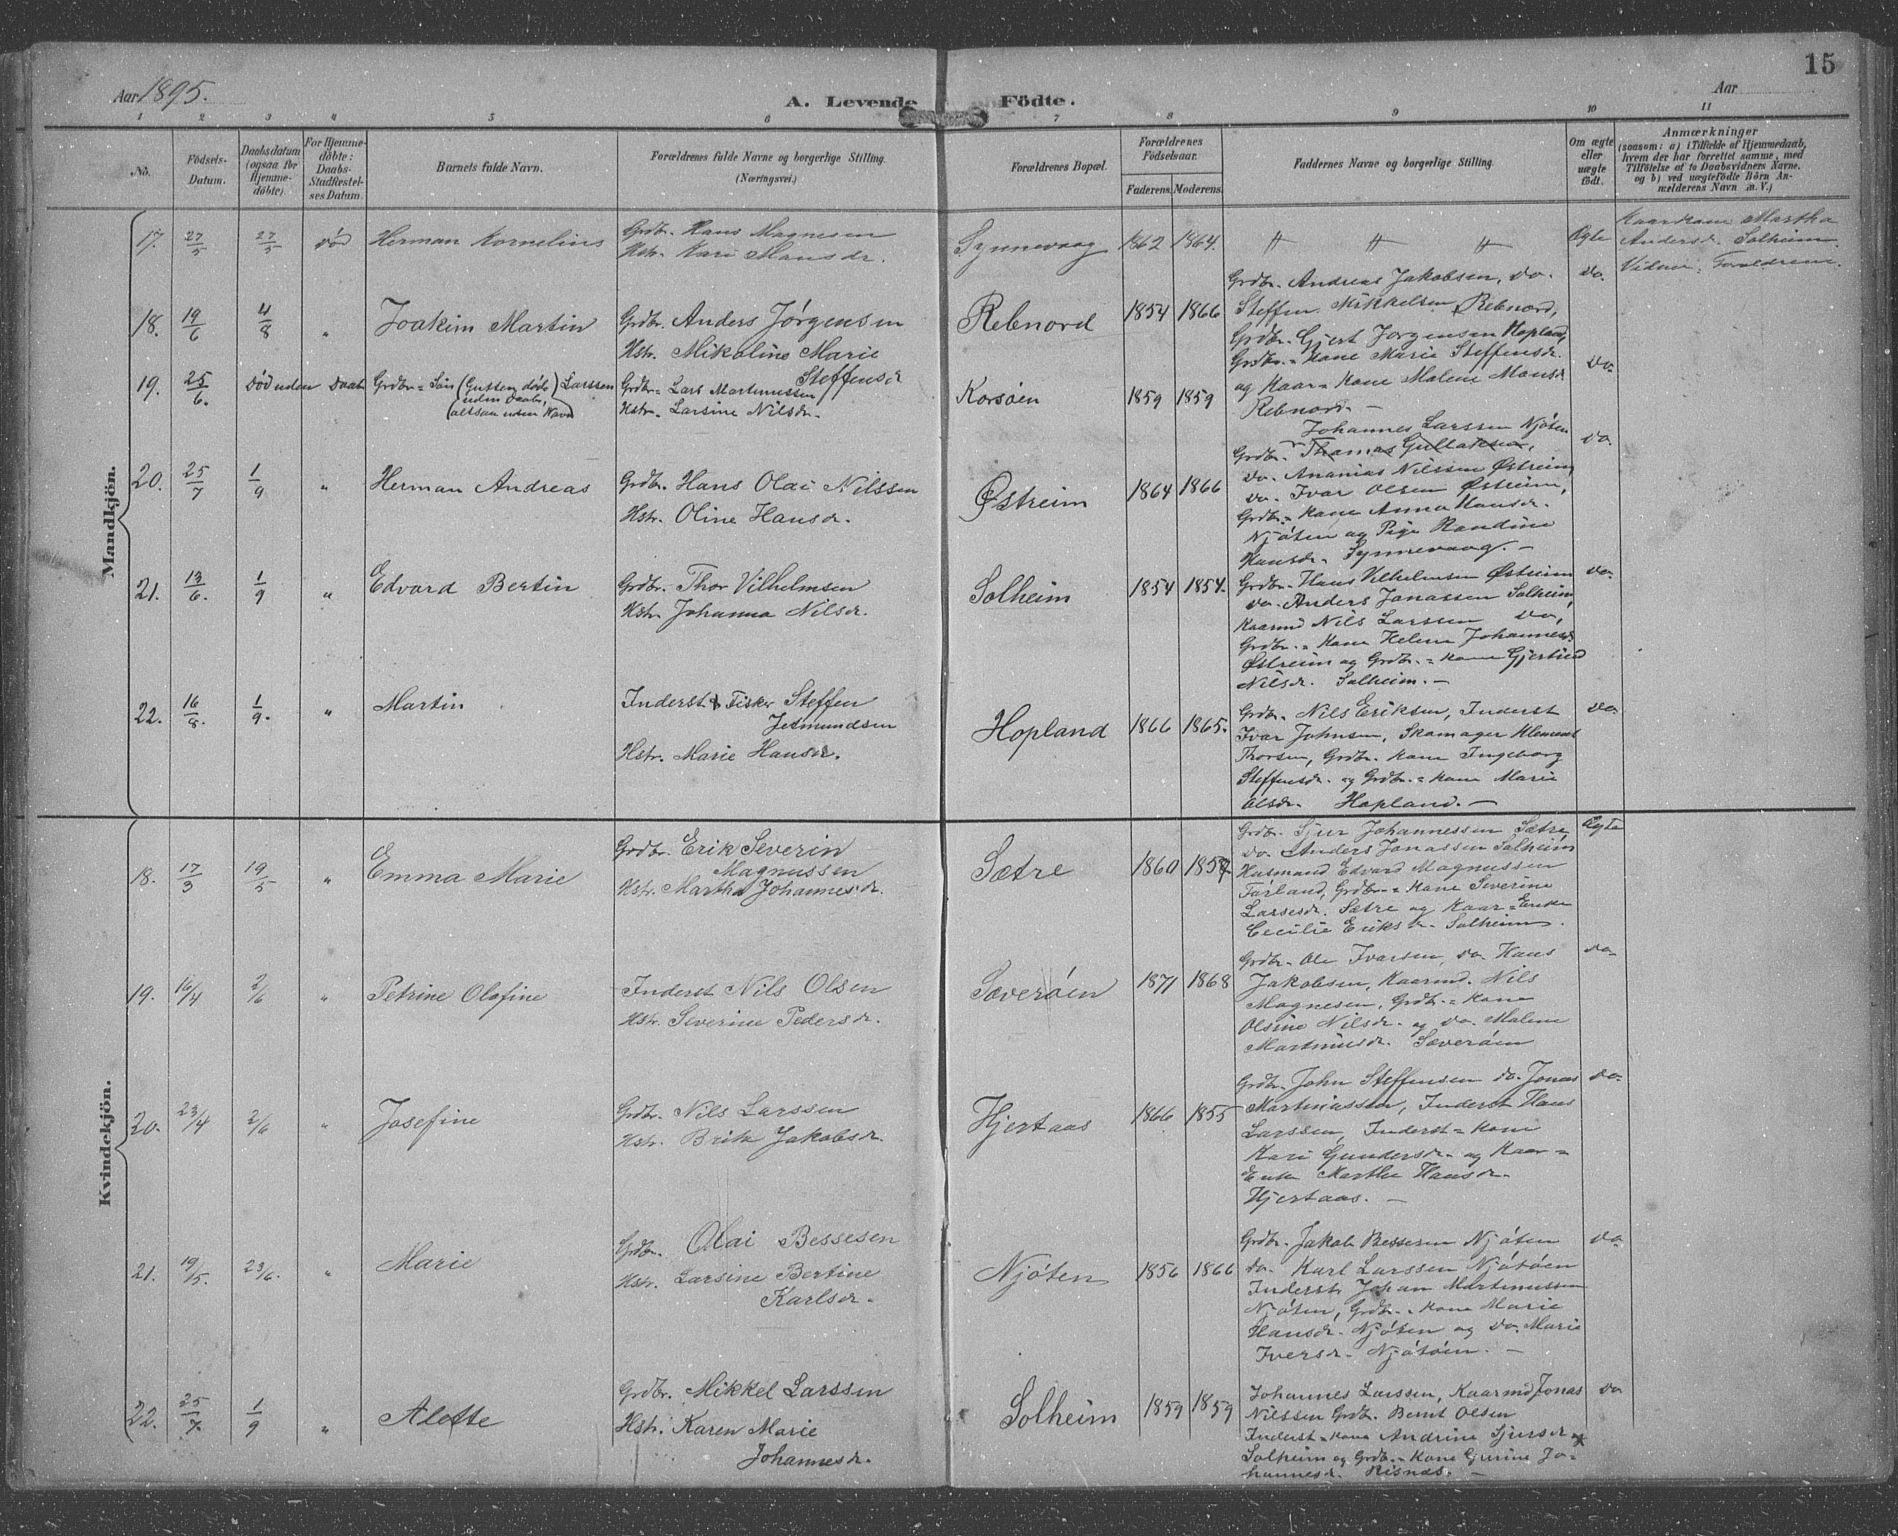 15
Aar 1895.
A. Levende Födte.
Aar
1 2 3 4 5 6 7 8 9 10 11
No.
Födsels-Datum.
Daabsdatum (ogsaa for Hjemme-döbte).
For Hjemme-döbte: Daabs-Stadfæstel-ses Datum.
Barnets fulde Navn.
Forældrenes fulde Navne og borgerlige Stilling. (Næringsvei.)
Forældrenes Bopæl.
Forældrenes Födselsaar.
Faderens. Moderens.
Faddernes Navne og borgerlige Stilling.
Om ægte eller uægte födt.
Anmærkninger
(saasom: a) i Tilfælde af Hjemmedaab,
hvem der har forrettet samme, med
Tilföielse af to Daabsvidners Navne,
og b) ved uægtefödte Börn An-
melderens Navn m. V.)
Mandkjön.
17. 27/5 27/5 død Herman Kornelius
Grdbr. Hans Magnesen
Hstr. Kari Mansdr.
Synnevaag 1862 1864. " " " Ægte
Kaarkone Martha
Andersdr. Solheim.
Vidner: Forældrene.
18. 19/6 4/8 " Joakim Martin
Grdbr. Anders Jørgensen
Hstr. Mikoline Marie
Steffensdr
Rebnord 1854 1866
Grdbr. Andreas Jakobsen, do. do.
Steffen Mikkelsen Rebnord,
Grdbr. Gjert Jørgensen Hopland,
Grdbr.= Kone Marie Steffensdr.
og Kaar=Kone Malene Mansdr
Rebnord.—
19. 25/6. Død uden Daab
Grdbr.= Søn (Gutten døde uden Daab, altsaa uden Navn) Larssen
Grdbr. Lars Martinussen
Hstr. Larsine Nilsdr.
Korsøen 1859 1859 do.
20. 25/7 1/9 " Herman Andreas
Grdbr. Hans Olai Nilssen
Hstr. Oline Hansdr.
Østreim 1864 1866
Johannes Larssen Njøten do.
Grdbr. Thomas Gullaksen,
do. Ananias Nilssen Østreim,
do. Ivar Olsen Østreim,
Grdbr.= Kone Anna Hansdr.
Njøten og Pige Randine
Hansdr. Synnevaag.—
21. 13/6. 1/9 " Edvard Bertin
Grdbr. Thor Vilhelmsen
Hstr. Johanna Nilsdr.
Solheim 1854 1854.
Grdbr. Hans Vilhelmsen Østreim do.
do. Anders Jonassen Solheim,
Kaarmd Nils Larssen do,
Grdbr.= Kone Helene Johannesdr
Østreim og Grdbr.= Kone Gjertrud
Nilsdr. Solheim.—
22. 16/8. 1/9. " Martin
Inderst & Fisker Steffen
Jetmundsen
Hstr. Marie Hansdr.
Hopland 1866 1865.
Grdbr. Nils Eriksen, Inderst do.
Ivar Johnsen, Skomager Klement
Thorsen, Grdbr. Kone Ingeborg
Steffensdr. og Grdbr.= Kone Marie
Olsdr. Hopland.—
Kvindekjön.
18. 17/3 19/5 " Emma Marie
Grdbr. Erik Severin
Magnussen
Hstr. Martha Johannesdr.
Sætre 1860 1857
Grdbr. Sjur Johannessen Sætre, Ægte
do. Anders Jonassen Solheim
Husmand Edvard Magnussen
Førland, Grdbr.= Kone Severine
Larsesdr. Sætre og Kaar=Enke
Cecilie Eriksdr. Solheim.
19. 16/4 2/6 " Petrine Olofine
Inderst Nils Olsen
Hstr. Severine Pedersdr.
Sæverøen 1871 1868
Grdbr. Ole Ivarsen, do. Hans do.
Jakobsen, Kaarmd. Nils
Magnesen, Grdbr.= Kone
Olsine Nilsdr. og do. Malene
Martinusdr. Sæverøen
20. 23/4 2/6 " Josefine
Grdbr. Nils Larssen
Hstr. Brite Jakobsdr.
Hjertaas 1866 1855
Grdbr. John Steffensen do. Jonas do.
Martinussen, Inderst Hans
Larssen, Inderst= Kone
Kari Gundersdr. og Kaar=
Enke Marthe Hansdr.
Hjertaas.—
21. 19/5. 23/6. " Marie
Grdbr. Olai Bessesen
Hstr. Larsine Bertine
Karlsdr.
Njøten 1856 1866
Grdbr. Jakob Bessesen Njøten do.
do. Karl Larssen Njøtøen
Inderst Johan Martinussen
Njøten, Grdbr.= Kone Marie
Hansdr. Njøten og do. Marie
Iversdr. Njøtøen.—
22. 25/7. 1/9 " Alette
Grdbr. Mikkel Larssen
Hstr. Karen Marie
Johannesdr.
Solheim 1859 1859
Johannes Larssen, Kaarmd Jonas do
Nilssen Grdbr. Bernt Olsen
Inderst=Kone Andrine Sjursdr
Solheim og Grdbr.= Kone Gjurine Jo-
hannesdr. Risnes.—